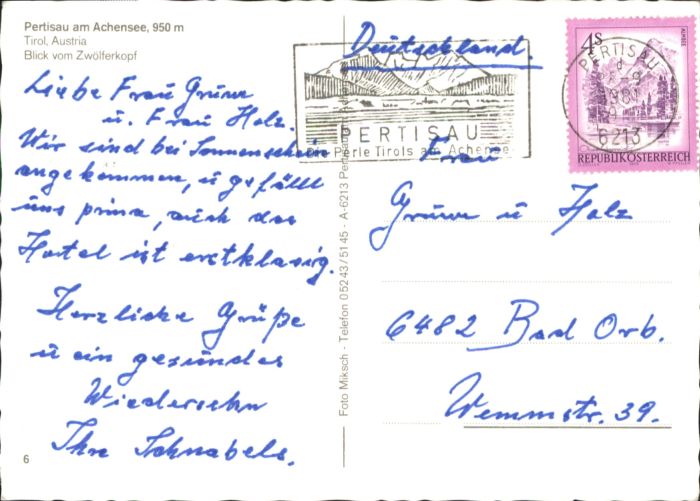 Pertisau am Achensee, 950 m
Tirol, Austria
Blick vom Zwölferkopf
Liebe Frau Grüw
u. Frau Holz.
Wir sind bei Sonnenschein
angekommen, u gefällt
uns prima, auch das
Hotel ist erstklassig.
Herzliche Grüße
u ein gesundes
Wiedersehn
Ihre Schnabels.
6
Foto Miksch - Telefon 05243/5145 - A-6213 Pertisau
PERTISAU
Die Perle Tirols am Achensee
Deutschland.
PERTISAU
6213
4S
REPUBLIK ÖSTERREICH
Frau
Grüw u Holz
6482 Bad Orb.
Wemmstr. 39.